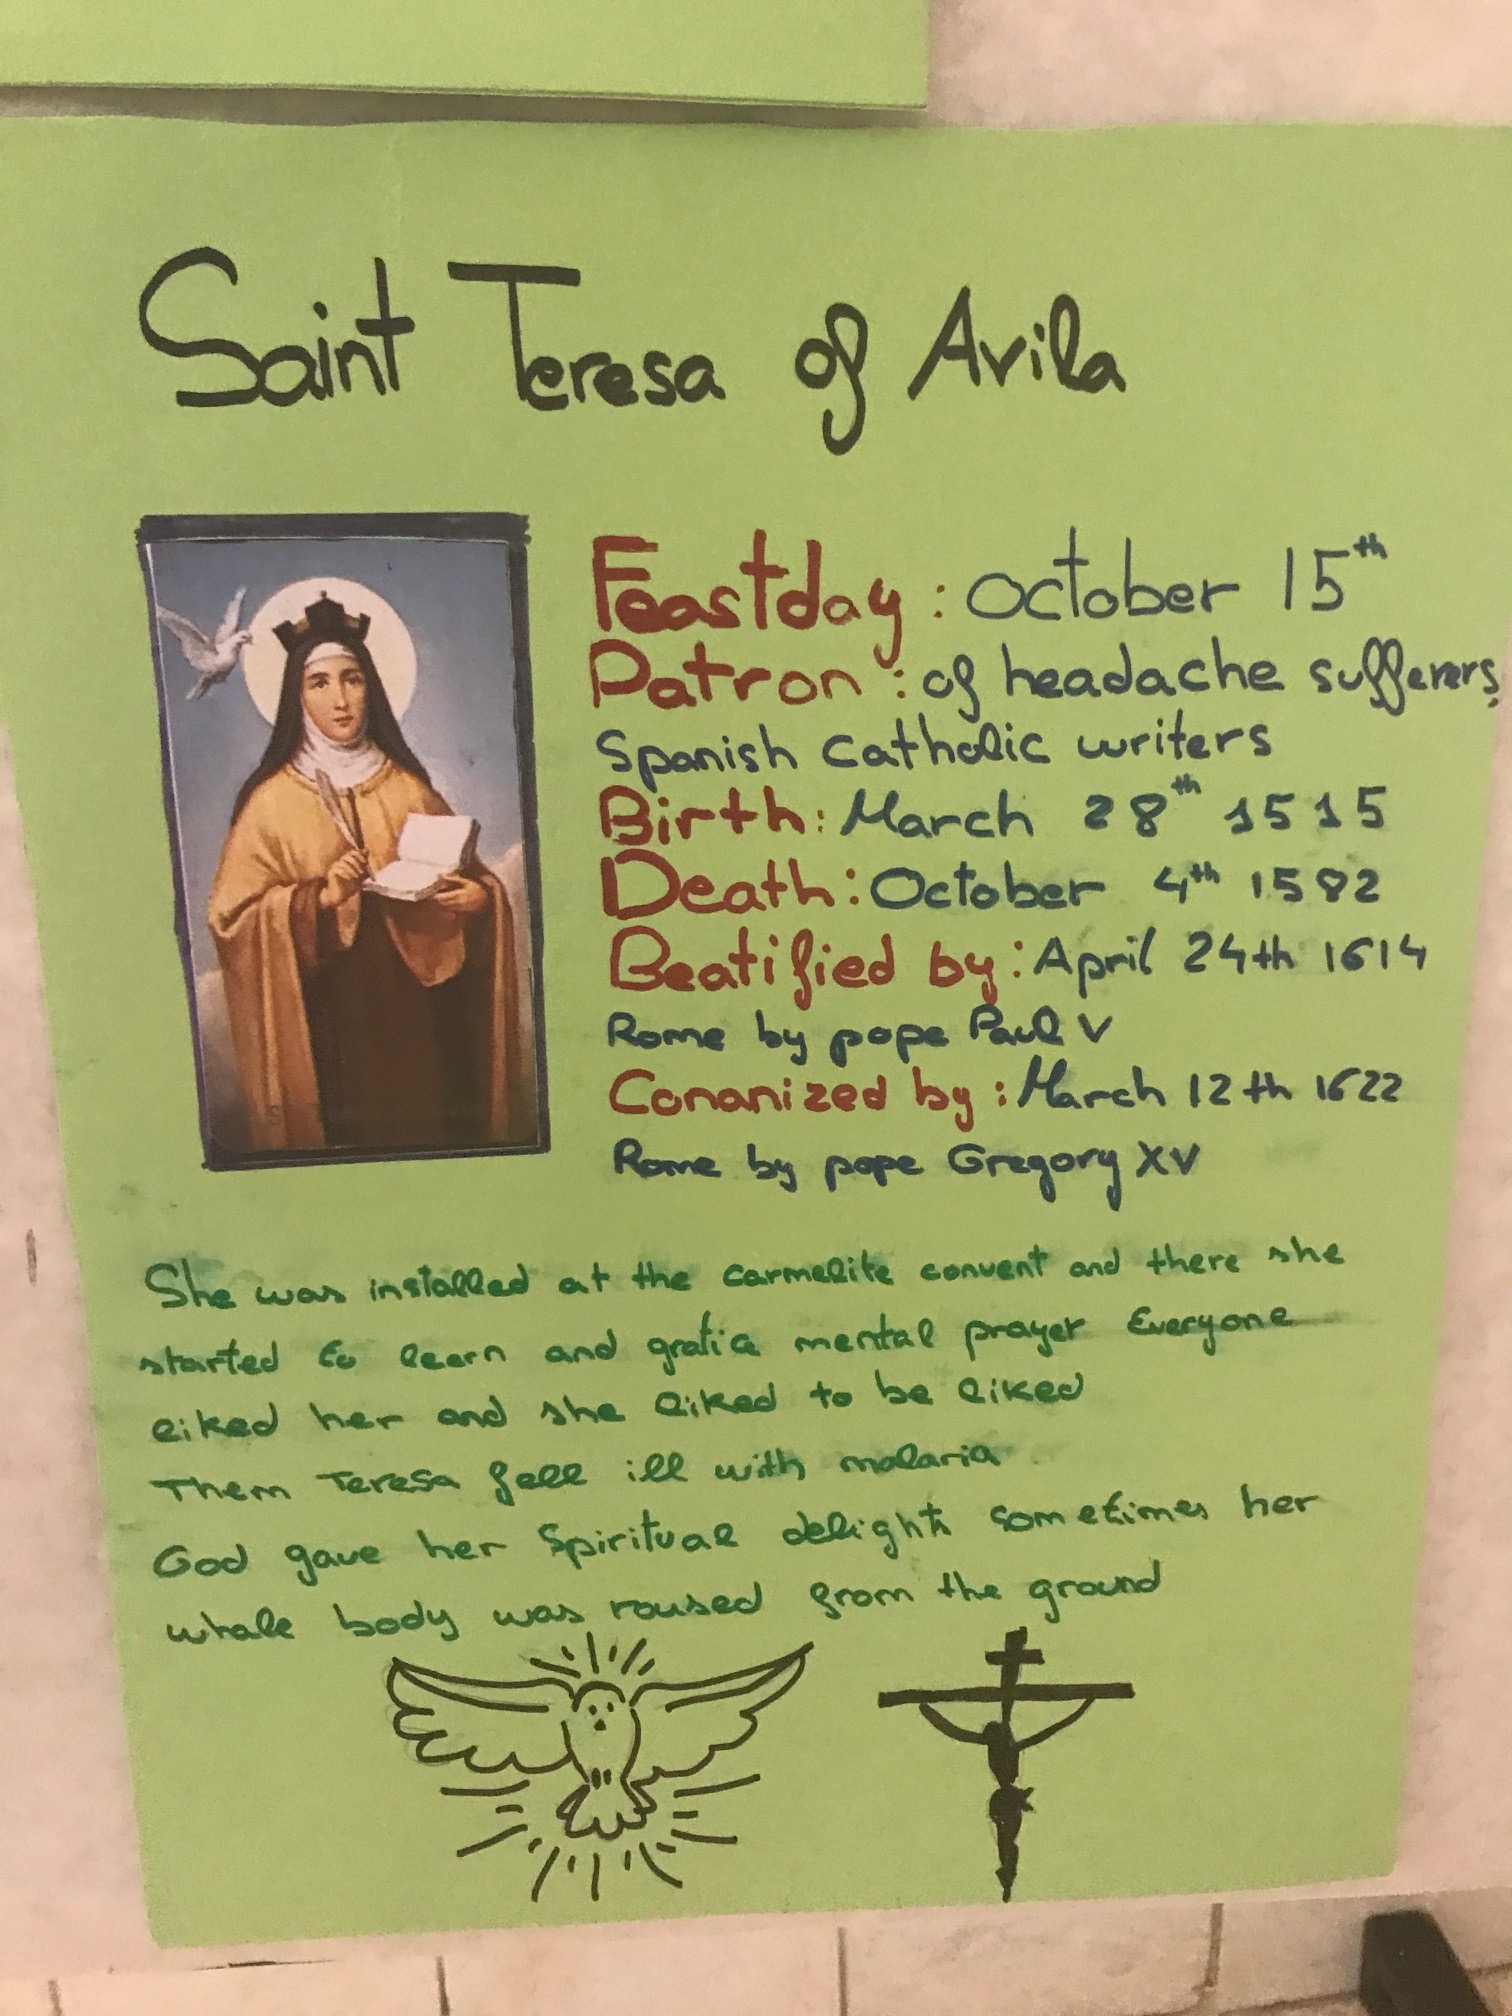 Saint Teresa of Avila
Feastday: October 15th
Patron: of headache sufferers,
Spanish Catholic writers
Birth: March 28th 1515
Death: October 4th 1582
Beatified by: April 24th 1614
Rome by pope Paul V
Cononized by: March 12th 1622
Rome by pope Gregory XV
She was installed at the carmelite convent and there she
started to learn and mental prayer Everyone
liked her and she liked to be liked
Them Teresa fell ill with malaria
God gave her Spiritual delights sometimes her
whole body was roused from the ground